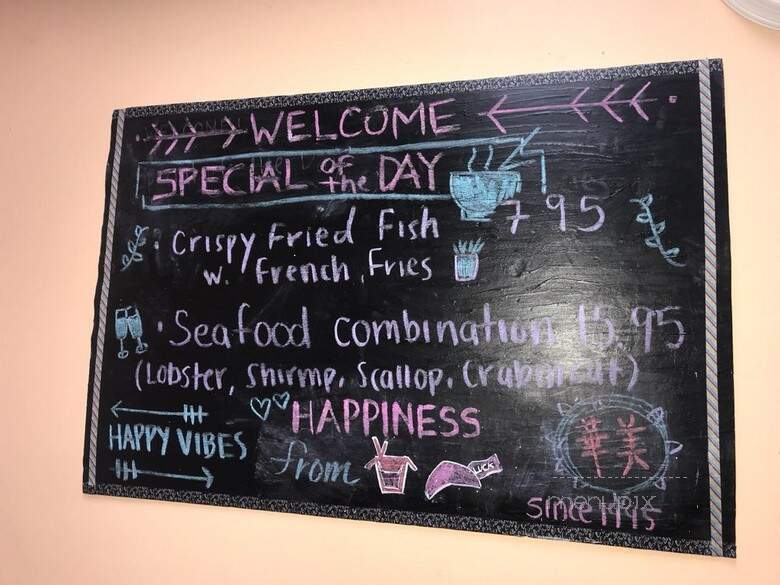 WELCOME
SPECIAL of the DAY
Crispy Fried Fish 7 95
w. French Fries
Seafood combination 15.95
(Lobster, Shirmp, Scallop, Crabmeat)
HAPPY VIBES
HAPPINESS
from
LUCK
華美
menupix
Since